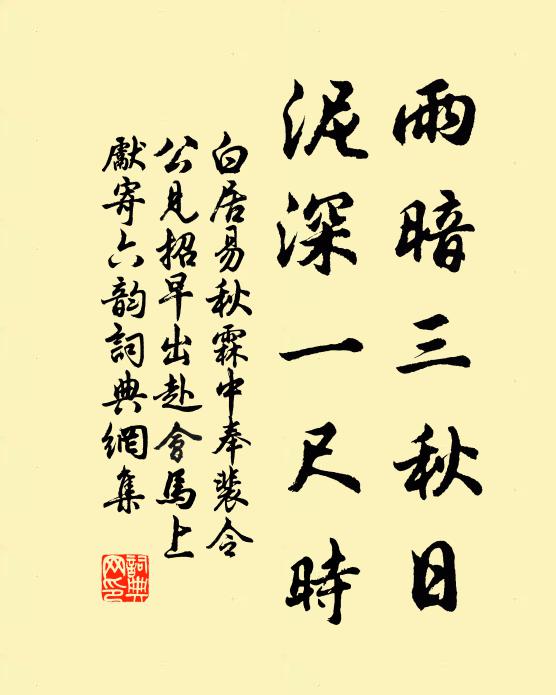 雨暗三秋日
泥深一尺時
白居易秋霖中奉裴令
公見招早出赴會馬上
獻寄六韵詞典網集
詞典
网印